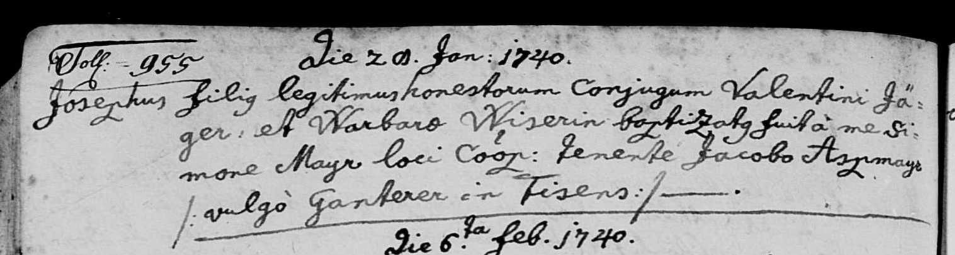 Foll: 955
Die 28. Jan: 1740.
Josephus filig legitimus honestorum Conjugum Valentini Jä=
ger: et Warbaræ Wiserin baptizatg fuit à me Si=
mone Mayr loci Coõp: tenente Jacobo Aspmayr
/: vulgò Ganterer in Tisens :/ .
Die 6.ta feb. 1740.